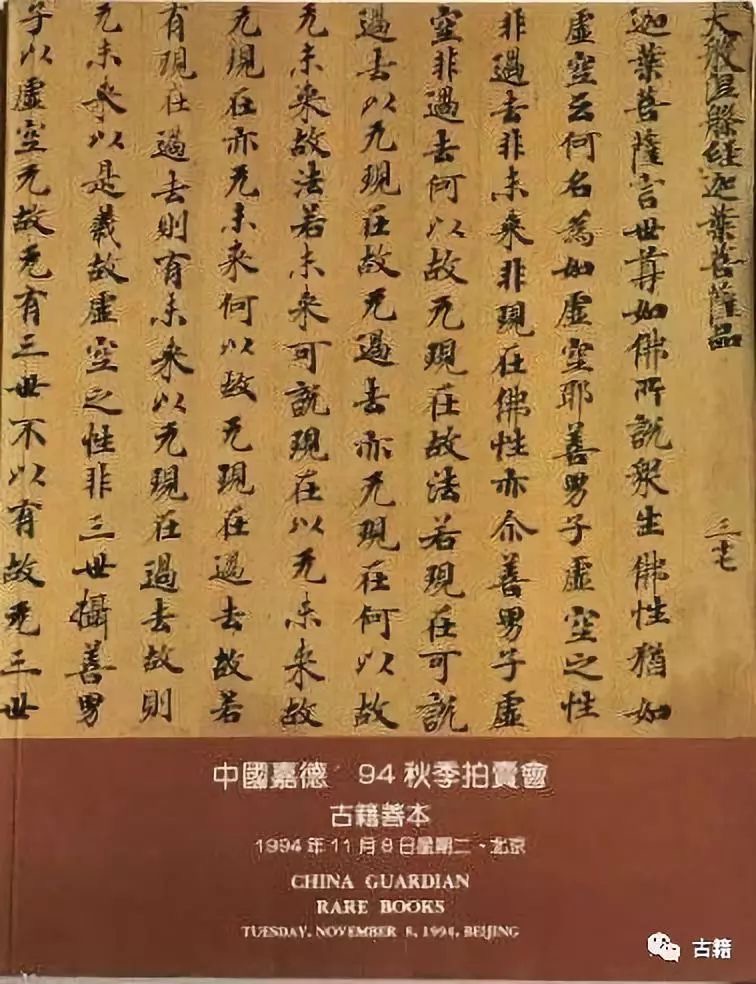 大般涅槃經迦葉菩薩品 三十七
迦葉菩薩言世尊如佛所說衆生佛性猶如
虛空云何名為如虛空耶善男子虛空之性
非過去非未来非現在佛性亦尒善男子虛
空非過去何以故无現在故法若現在可說
過去以无現在故无過去亦无現在何以故
无未来故法若未来可說現在以无未来故
无現在亦无未来何以故无現在過去故若
有現在過去則有未来以无現在過去故則
无未来以是義故虛空之性非三世攝善男
子以虛空无故无有三世不以有故无三世
中國嘉德 94秋季拍賣會
古籍善本
1994年11月8日星期二、北京
CHINA GUARDIAN
RARE BOOKS
TUESDAY, NOVEMBER 8, 1994, BEIJING
古籍